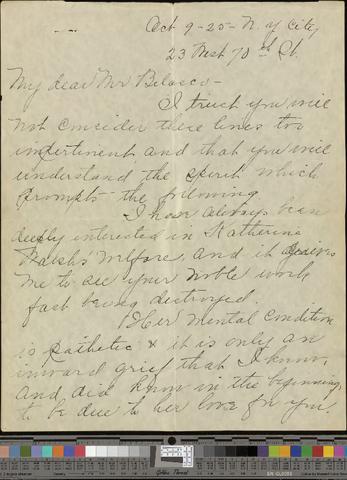 Oct 9-25- N. y City
23 West 70th St.
My dear Mr Belasco -
I trust you will
not consider these lines too
impertinent and that you will
understand the spirit which
prompts the following
I have always been
deeply interested in Katherine
welfare, and it grieves
me to see your noble work
fast being destroyed.
Her mental condition
is pathetic & it is only an
inward grief that I know,
and did know in the beginning,
to be due to her love for you.
Golden Thread